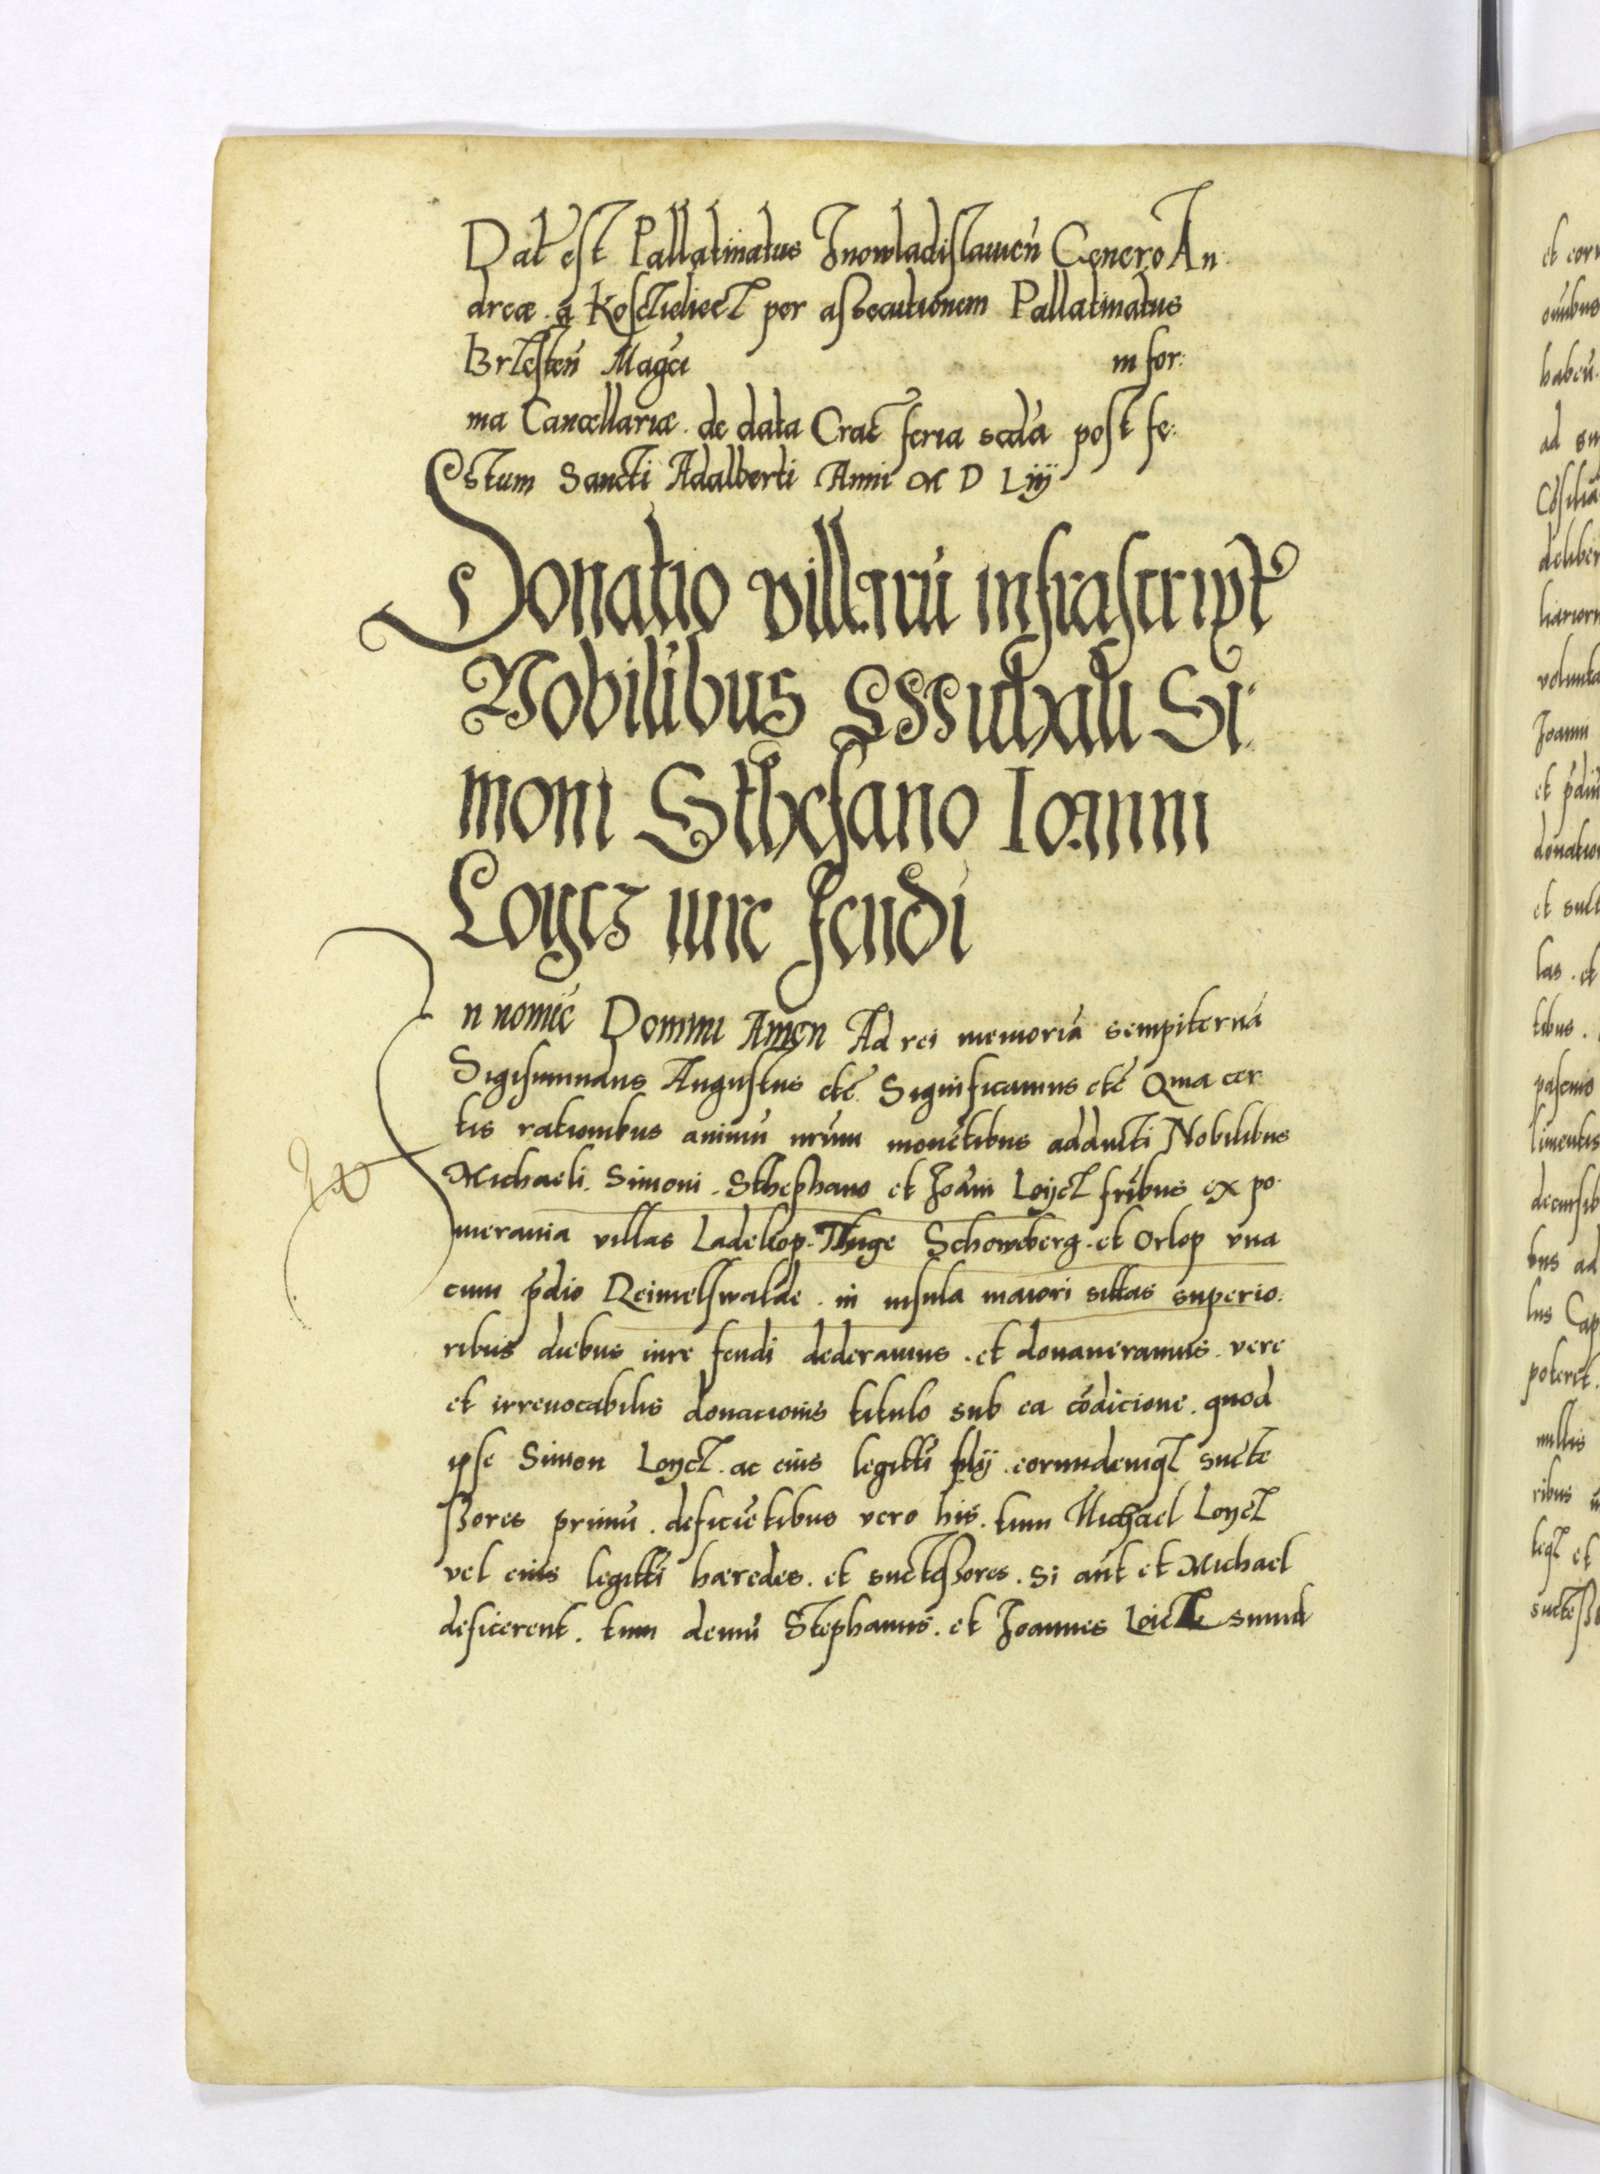 Dat̃ est Pallatinatus Inowladislauieñ Genero An
dreæ a Kosczieliecz per assecutionem Pallatinatus
Brzesteñ Magci in for:
ma Cancellariæ de data Crac̃ feria secda post fe:
stum Sancti Adalberti Anni M D Liij
Donatio villarũ infrascript
Nobilibus Michaeli Si:
moni Sthefano Ioanni
Loycz iure feudi
In nomie Domini Amen Ad rei memoriã sempiternã
Sigismundus Augustus etc̃ Significamus etc̃ Quia cer
tis rationibus animũ nrũm mouẽtibus adducti Nobilibus
Michaeli. Simoni. Sthephano et Joãni Loycz fribus ex po
merania villas Ladekop. Thige Schoweberg. et Orlop vna
cum p̃dio Reimelswalde. in insula maiori sitas superio:
ribus diebus iure feudi dederamus. et donaueramus. vere
et irreuocabilis donacionis titulo sub ea cõdicione. quod
ipse Simon Loycz. ac eius legitti filij. eorundemqz succe
ssores primũ. deficiẽtibus vero his. tum Michael Loycz
vel eius legitti hæredes. et successores. Si aũt et Michael
deficerent. tum demũ Stephanus. et Joannes Loicze simul